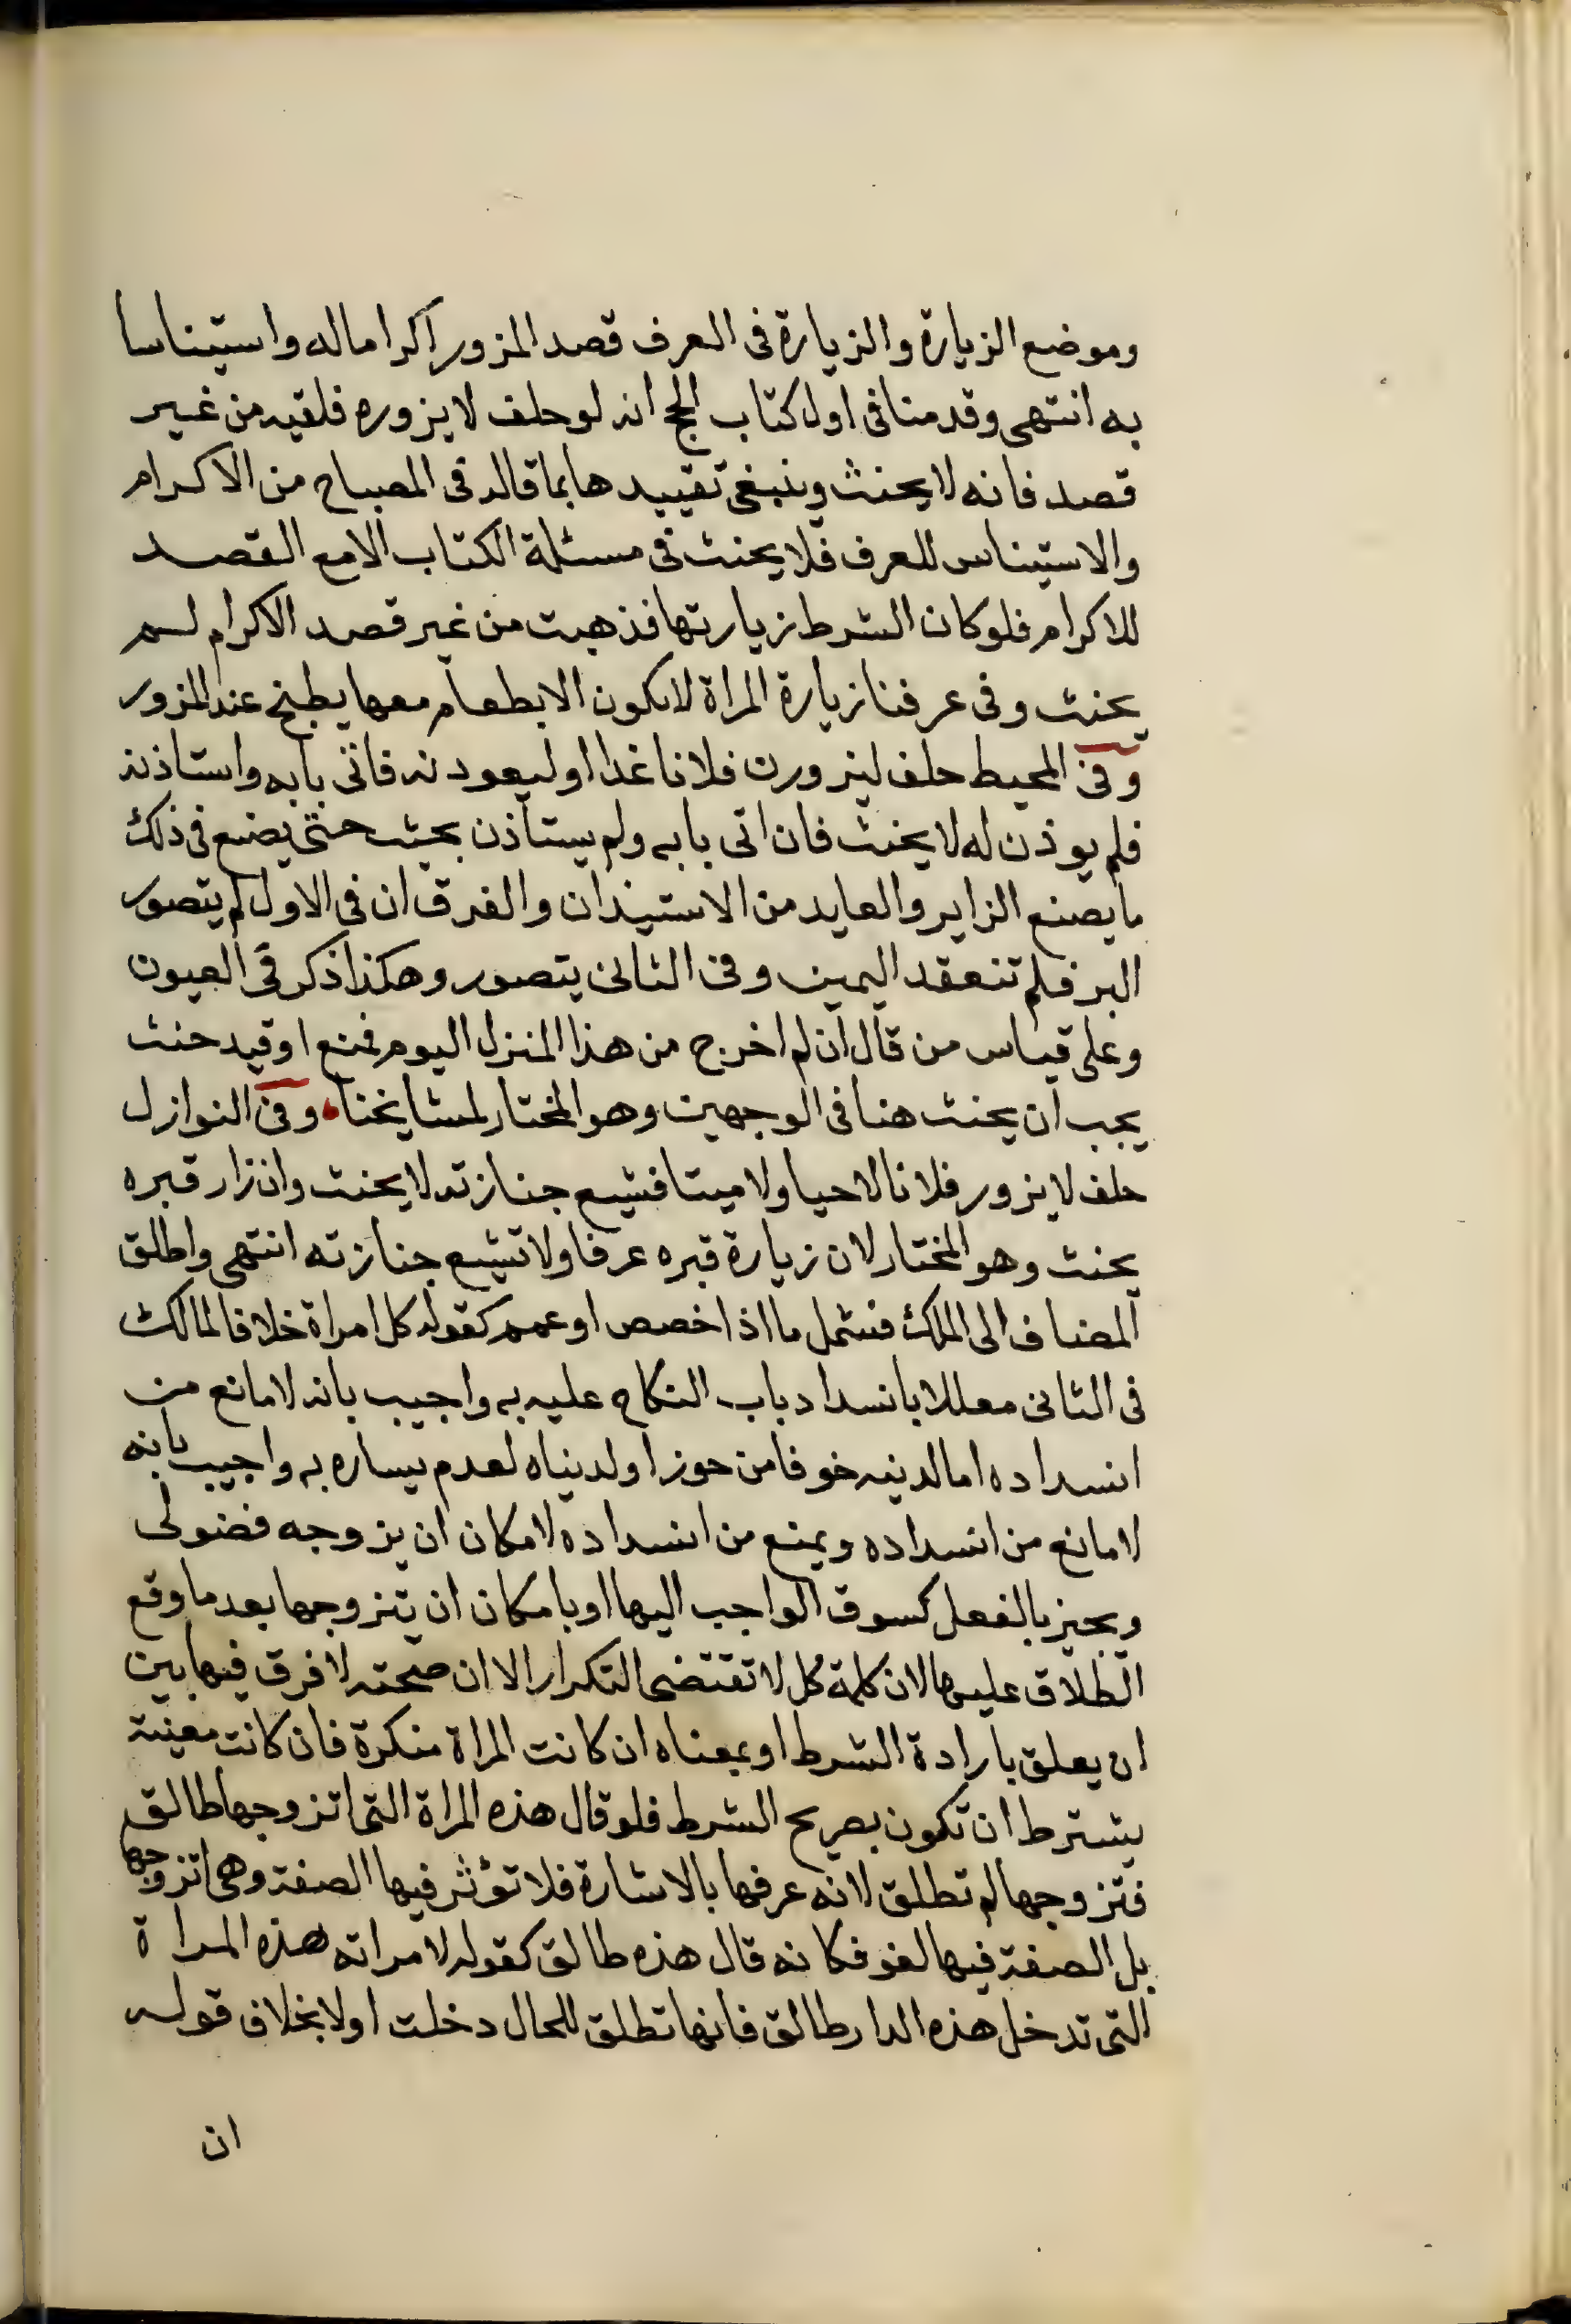 وموضع الزيارة والزيارة فى العرف قصد المزور اكراما له واستيناسا
به انتهى وقدمنا فى اول كتاب الحج انه لو حلف لا يزوره فلقيه من غير
قصد فانه لا يحنث وينبغى تقييدها بما قاله فى المصباح من الاكرام
والاستيناس للعرف فلا يحنث فى مسئلة الكتاب الا مع القصد
للاكرام فلو كان الشرط زيارتها فذهبت من غير قصد الاكرام لم
يحنث وفى عرفنا زيارة المراة لا يكون الا بطعام معها يطبخ عند المزور
وفى المحيط حلف ليزورن فلانا غدا او ليعودنه فاتى بابه واستاذنه
فلم يوذن له لا يحنث فان اتى بابه ولم يستأذن يحنث حتى يصنع فى ذلك
ما يصنع الزاير والعايد من الاستيذان والفرق ان فى الاول لم يتصور
البر فلم تنعقد اليمين وفى الثانى يتصور وهكذا ذكر فى العيون
وعلى قياس من قال ان لم اخرج من هذا المنزل اليوم فمنع او قيد حنث
يجب ان يحنث هنا فى الوجهين وهو المختار لمشايخنا وفى النوازل
حلف لا يزور فلانا لا حيا ولا ميتا فشيع جنازته لا يحنث وان زار قبره
يحنث وهو المختار لان زيارة قبره عرفا ولا تشيع جنازته انتهى واطلق
المضاف الى الملك فشمل ما اذا خصص او عمم كقوله كل امراة خلافا لمالك
فى الثانى معللا بانسداد باب النكاح عليه به واجيب بانه لا مانع من
انسداده اما لدينه خوفا من جور او لدنياه لعدم يساره به واجيب بانه
لا مانع من انسداده ويمنع من انسداده لامكان ان يزوجه فضولى
ويجيز بالفعل كسوق الواجب اليها او بامكان ان يتزوجها بعد ما وقع
الطلاق عليها لان كلمة كل لا تقتضى التكرار الا ان صحته لا فرق فيها بين
ان يعلق باراده الشرط او بمعناه ان كانت المراة منكرة فان كانت معينة
يشترط ان تكون بصريح الشرط فلو قال هذه المراة التى اتزوجها طالق
فتزوجها لم تطلق لانه عرفها بالاشارة فلا تؤثر فيها الصفة وهى اتزوجها
بل الصفة فيها لغو فكانه قال هذه طالق كقوله لامراته هذه المراة
التى تدخل هذه الدار طالق فانها تطلق للحال دخلت اولا بخلاف قوله
ان